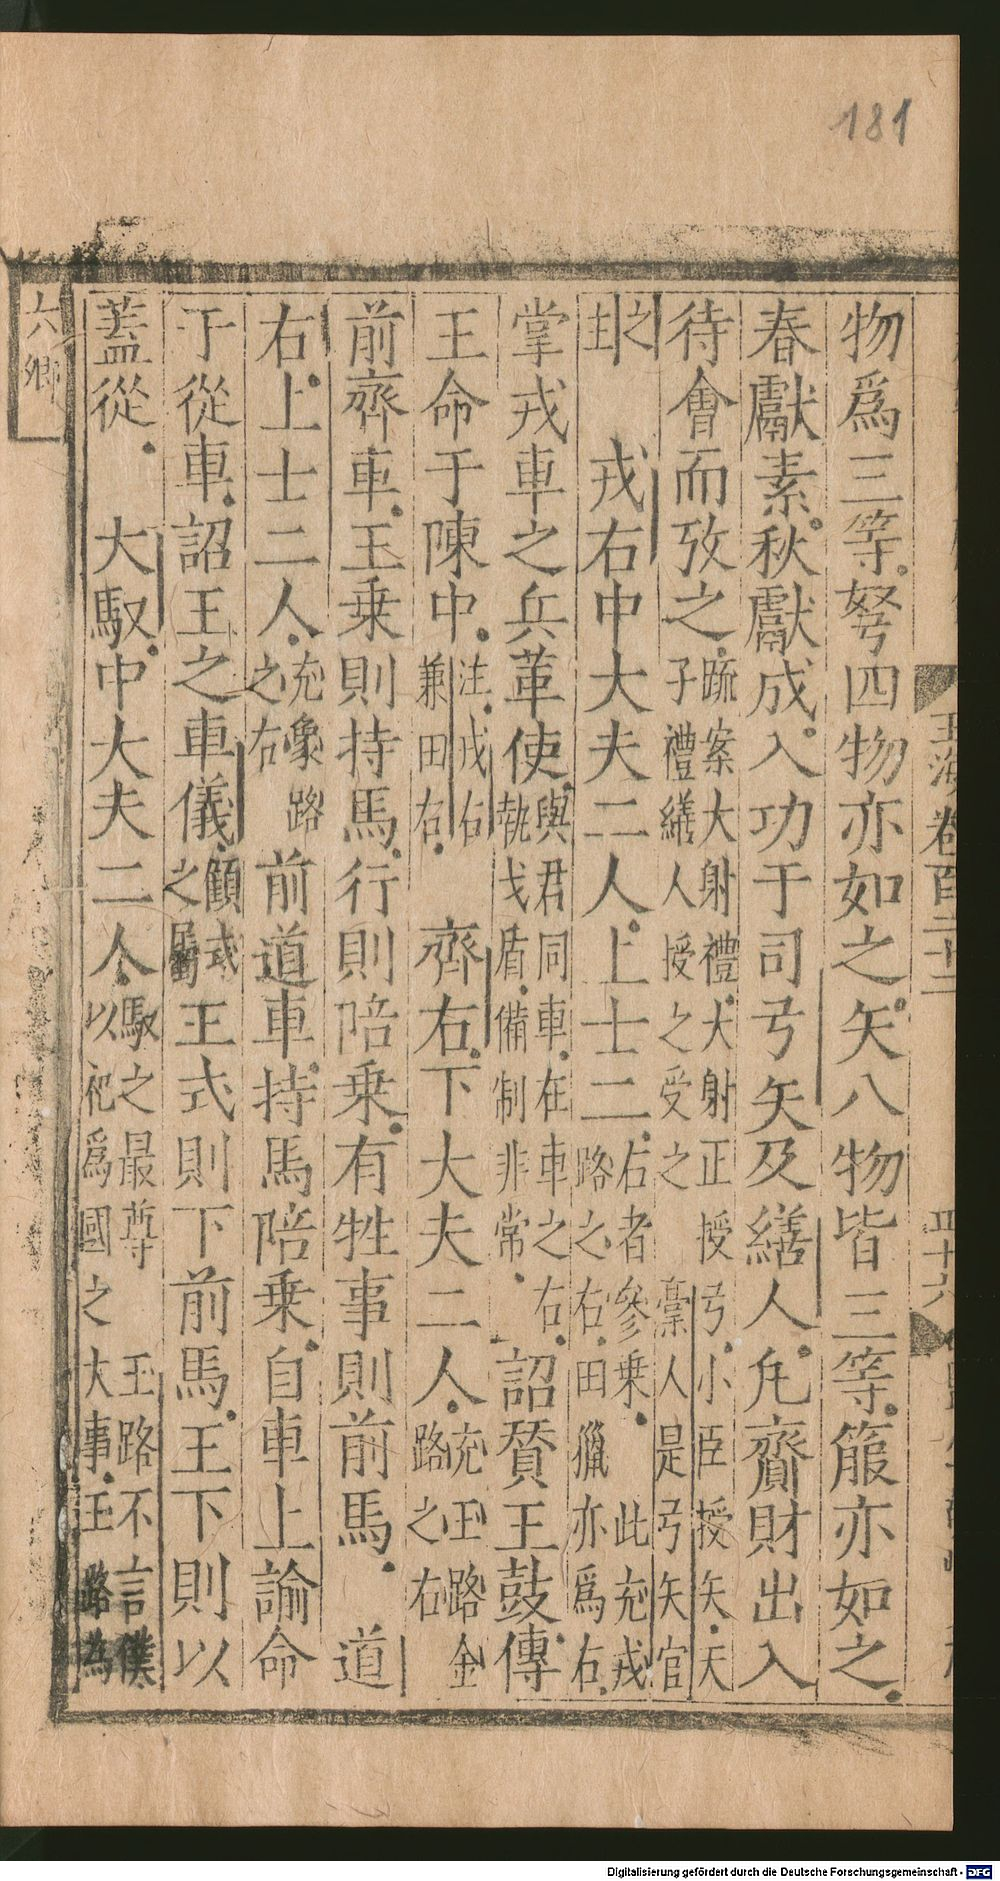 181
物爲三等。弩四物亦如之。矢八物皆三等。箙亦如之。
春獻素。秋獻成。入功于司弓矢及繕人。凡齎財出入
待會而攷之。疏案大射禮。大射正授弓。小臣授矢。天
子禮繕人授之受之 稾人是弓矢官
之
 戎右中大夫二人。上士二。右者參乗。此充戎
路之右。田獵亦爲右。
掌戎車之兵革使。與君同車。在車之右。
執戈盾。備制非常。詔贊王鼓。傳
王命于陳中。注。戎右
兼田右。齊右。下大夫二人。充玉路金
路之右
前齊車。王乗則持馬。行則陪乗。有牲事則前馬。 道
右。上士二人。充象路
之右 前道車。持馬陪乗。自車上諭命
于從車。詔王之車儀。顧式
之屬 王式則下前馬。王下則以
蓋從。 大馭。中大夫二人。馭之最尊 玉路不言僕
以祀爲國之大事。王路為
六鄉
玉海卷百三十二
四十六
Digitalisierung gefördert durch die Deutsche Forschungsgemeinschaft - DFG